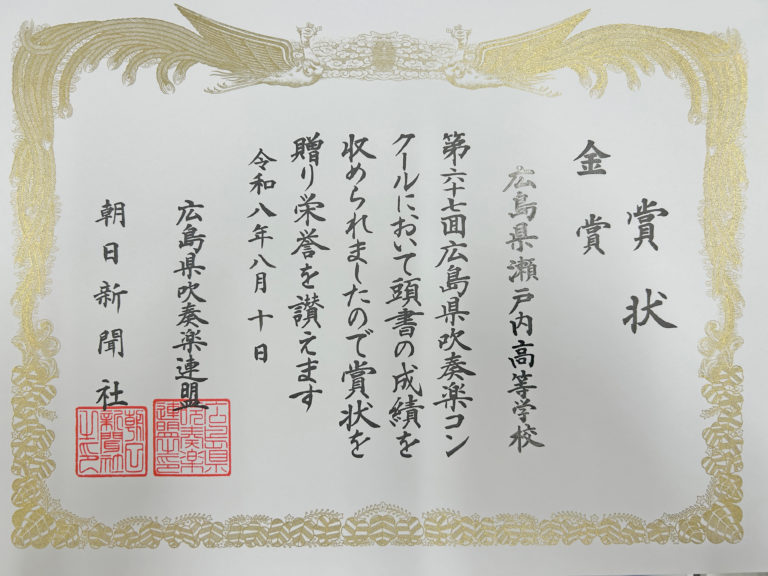 賞状
金賞
広島県瀬戸内高等学校
第六十七回広島県吹奏楽コン
クールにおいて頭書の成績を
収められましたので賞状を
贈り栄誉を讃えます
令和八年八月十日
広島県吹奏楽連盟
朝日新聞社
広島県
吹奏楽
連盟之印
朝日
新聞社
之印